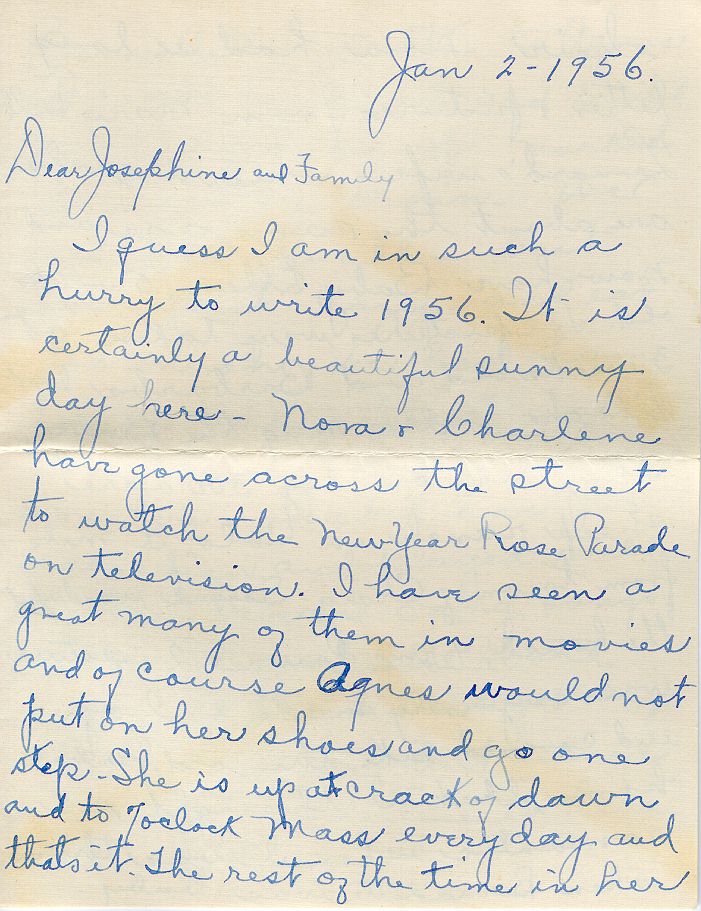 Jan 2-1956.
Dear Josephine and Family
I guess I am in such a
hurry to write 1956. It is
certainly a beautiful sunny
day here - Nora & Charlene
have gone across the street
to watch the New Year Rose Parade
on television. I have seen a
great many of them in movies
and of course Agnes would not
put on her shoes and go one
step - She is up at crack of dawn
and to 7oclock Mass every day and
thats it. The rest of the time in her